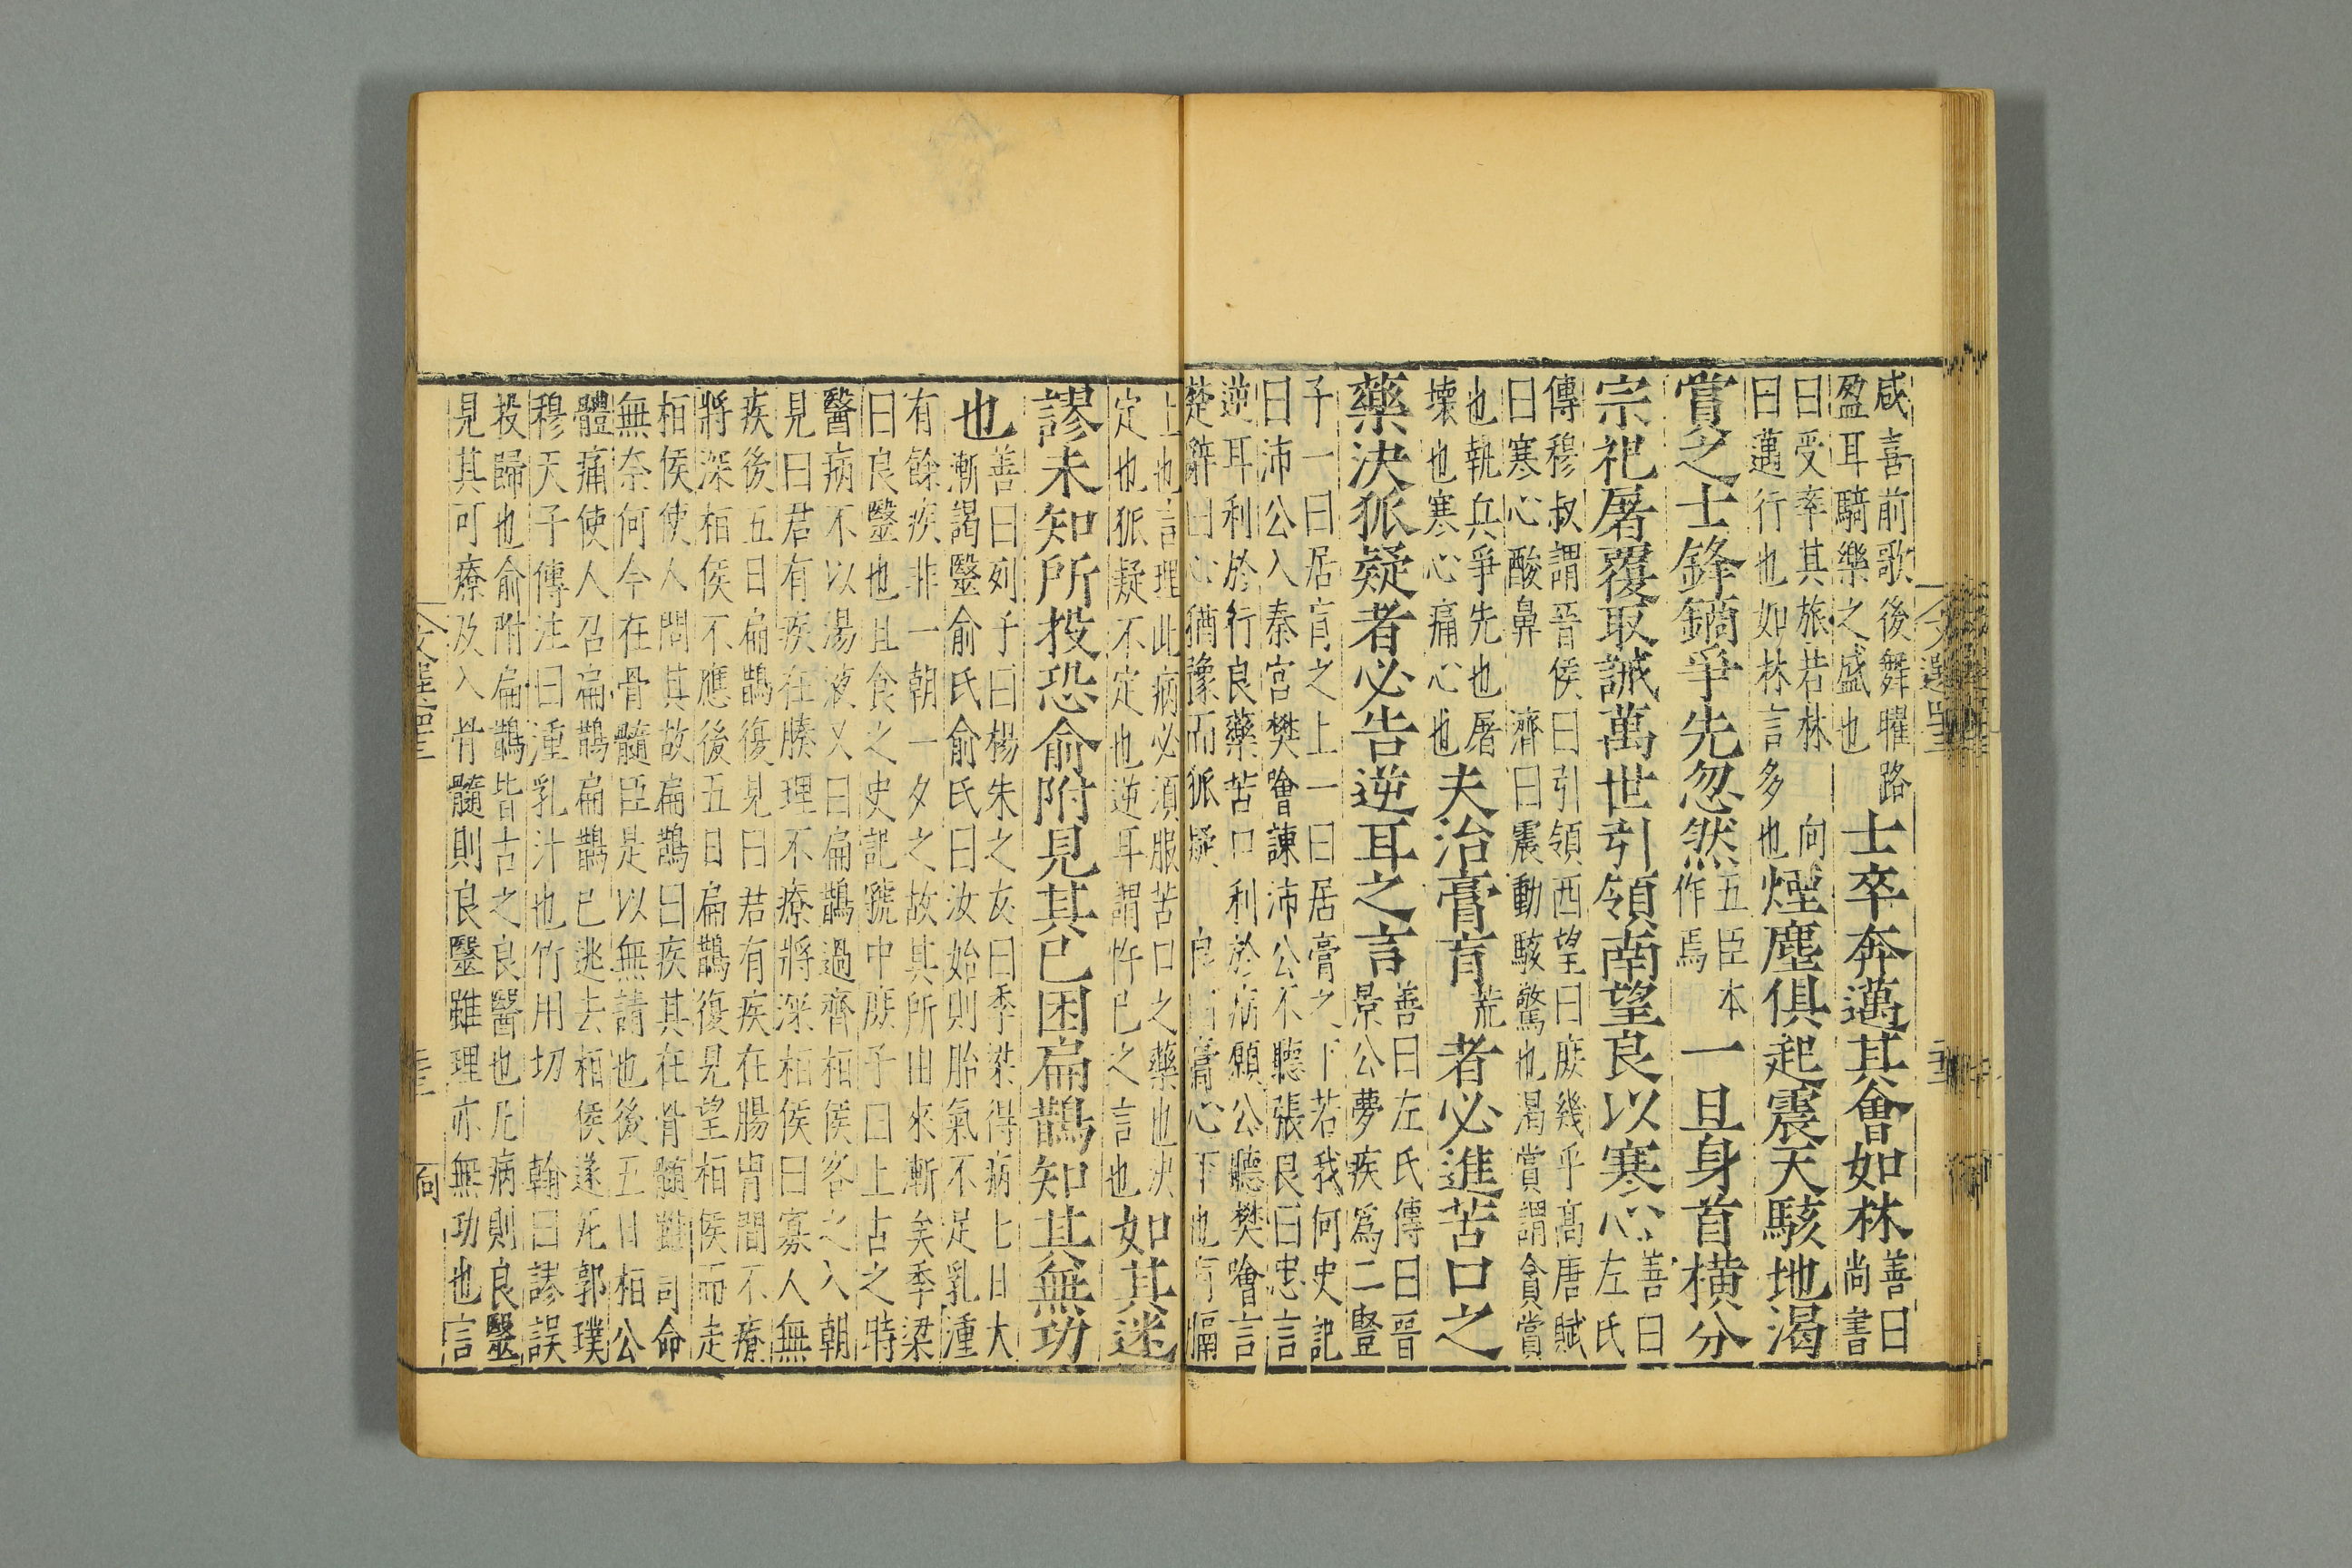 咸喜前歌後舞曜路
盈耳騎樂之盛也
士卒奔邁其會如林
善曰
尚書
曰受率其旅若林
向
曰邁行也如林言多也
煙塵俱起震天駭地渴
賞之士鋒鏑爭先忽然
五臣本
作焉
一旦身首橫分
宗祀屠覆取誡萬世引領南望良以寒心
善曰
左氏
傳穆叔謂晉侯曰引領西望曰庶幾乎高唐賦
曰寒心酸鼻
濟曰震動駭驚也渴賞謂貪賞
也執兵爭先也屠
壞也寒心痛心也
夫治膏肓
荒
者必進苦口之
藥決狐疑者必告逆耳之言
善曰左氏傳曰晉
景公夢疾為二豎
子一曰居肓之上一曰居膏之下若我何史記
曰沛公入秦宮樊噲諫沛公不聽張良曰忠言
逆耳利於行良藥苦口利於病願公聽樊噲言
楚辭曰心猶豫而狐疑
膏心下也
上也言理此病必須服苦口之藥也決
定也狐疑不定也逆耳謂忤己之言也
如其迷
謬未知所投恐俞附見其已困扁鵲知其無功
也
善曰列子曰楊朱之友曰季梁得病七日大
漸謁醫俞氏俞氏曰汝始則胎氣不足乳湩
有餘疾非一朝一夕之故其所由來漸矣季梁
曰良醫也且食之史記虢中庶子曰上古之時
醫病不以湯液又曰扁鵲過齊桓侯客之入朝
見曰君有疾在腠理不療將深桓侯曰寡人無
疾後五日扁鵲復見曰君有疾在腸胃間不療
將深桓侯不應後五日扁鵲復見望桓侯而走
桓侯使人問其故扁鵲曰疾其在骨髓雖司命
無奈何今在骨髓臣是以無請也後五日桓公
體痛使人召扁鵲扁鵲已逃去桓侯遂死郭璞
穆天子傳注曰湩乳汁也竹用切
翰曰謬誤
投歸也俞附扁鵲皆古之良醫也凡病則良醫
見其可療及入骨髓則良醫雖理亦無功也言